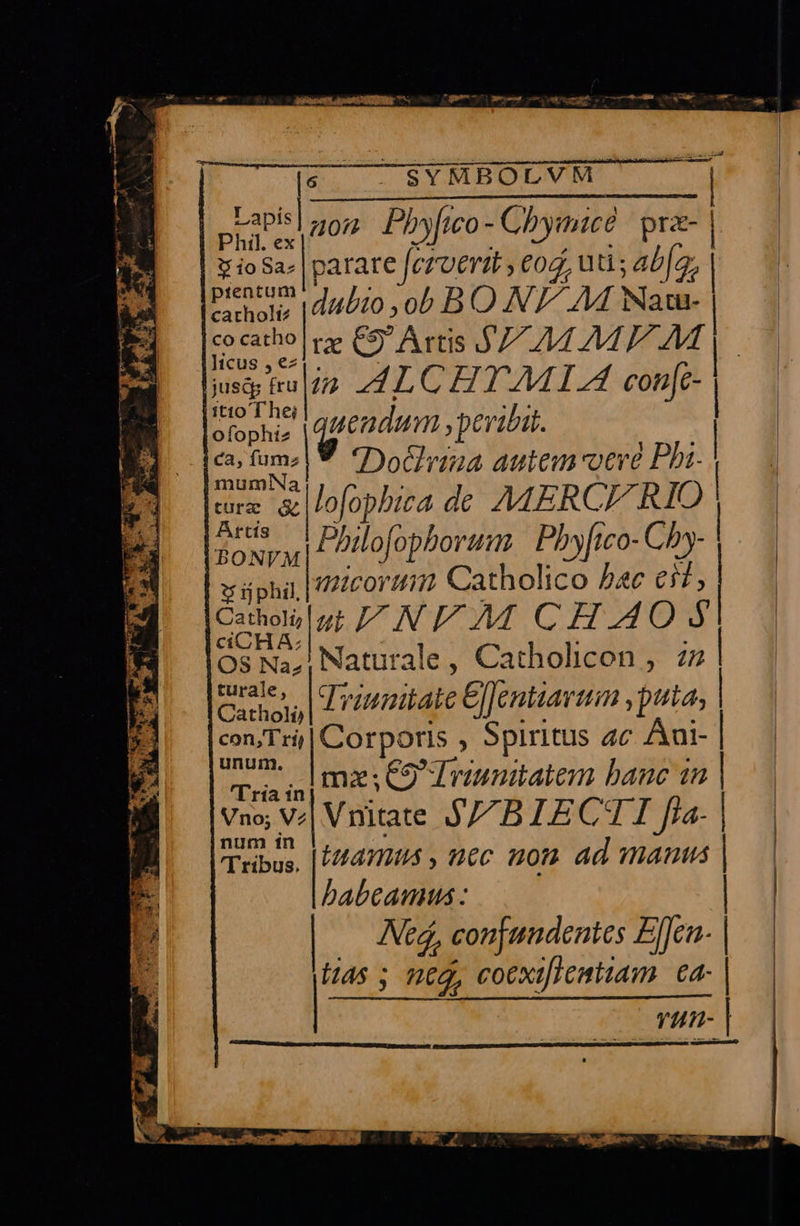 6 SYMBOLVM
Lapis
Phil. ex
☿io Sa⸗
pientum
catholi⸗
co catho
licus , e⸗
jusq́; fru
itio Thei
osophi⸗
ca, sum⸗
mum Na
turæ &
Artis
BONVM
☿ ij phil,
Catholi
ciCHA⸗
OS Na⸗
turale,
Catholi⸗
con, Trij
unum.
Tria in
Vno; V⸗
num in
Tribus.
non Physico-Chymicè præ-
parare sciverit, eoq́, uti; absq́,
dubio, ob BONVM Natu-
ræ & Artis SVMMVM
in ALCHYMIA conse-
quendum, peribit.
Doctrina autem verè Phi-
losophica de MERCVRIO
Philosophorum Physico-Chy-
micorum Catholico hæc est,
ut VNVM CHAOS
Naturale, Catholicon, in
Triunitate Essentiarum, puta,
Corporis, Spiritus ac Ani-
mæ; & Triunitatem hanc in
Vnitate SVBIECTI sta-
tuamus, nec non ad manus
habeamus:
Neq́, confundentes Essen-
tias; neq́, coexistentiam ea-
run-